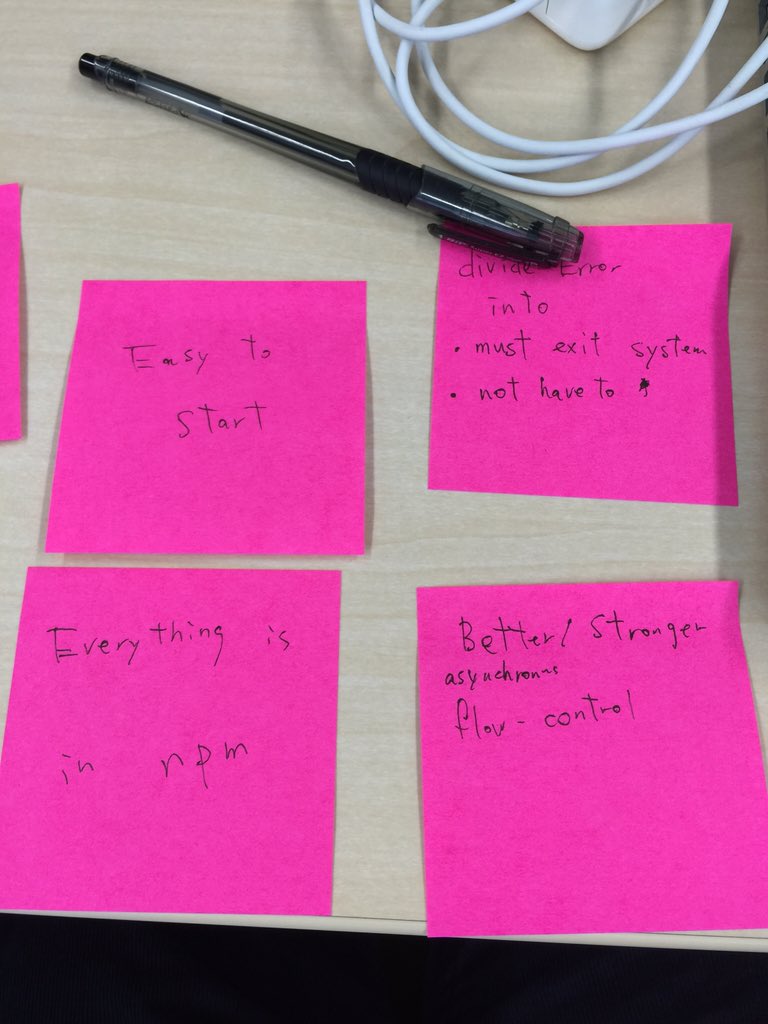 Easy to
start
divide Error
into
• must exit system
• not have to
Everything is
in npm
Better/Stronger
asynchronus
flow-control